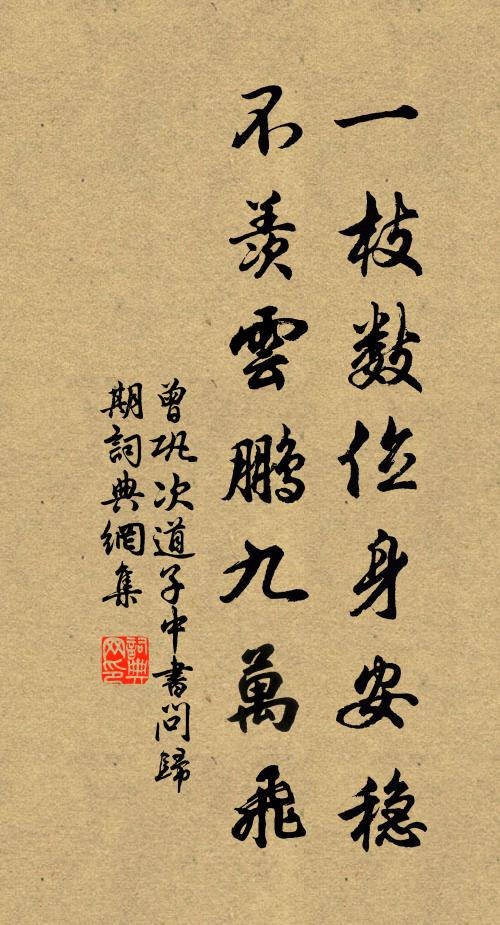 一枝數粒身安穩
不羨雲鵬九萬飛
曾巩次道子中書問歸
期詞典網集
詞典
网印